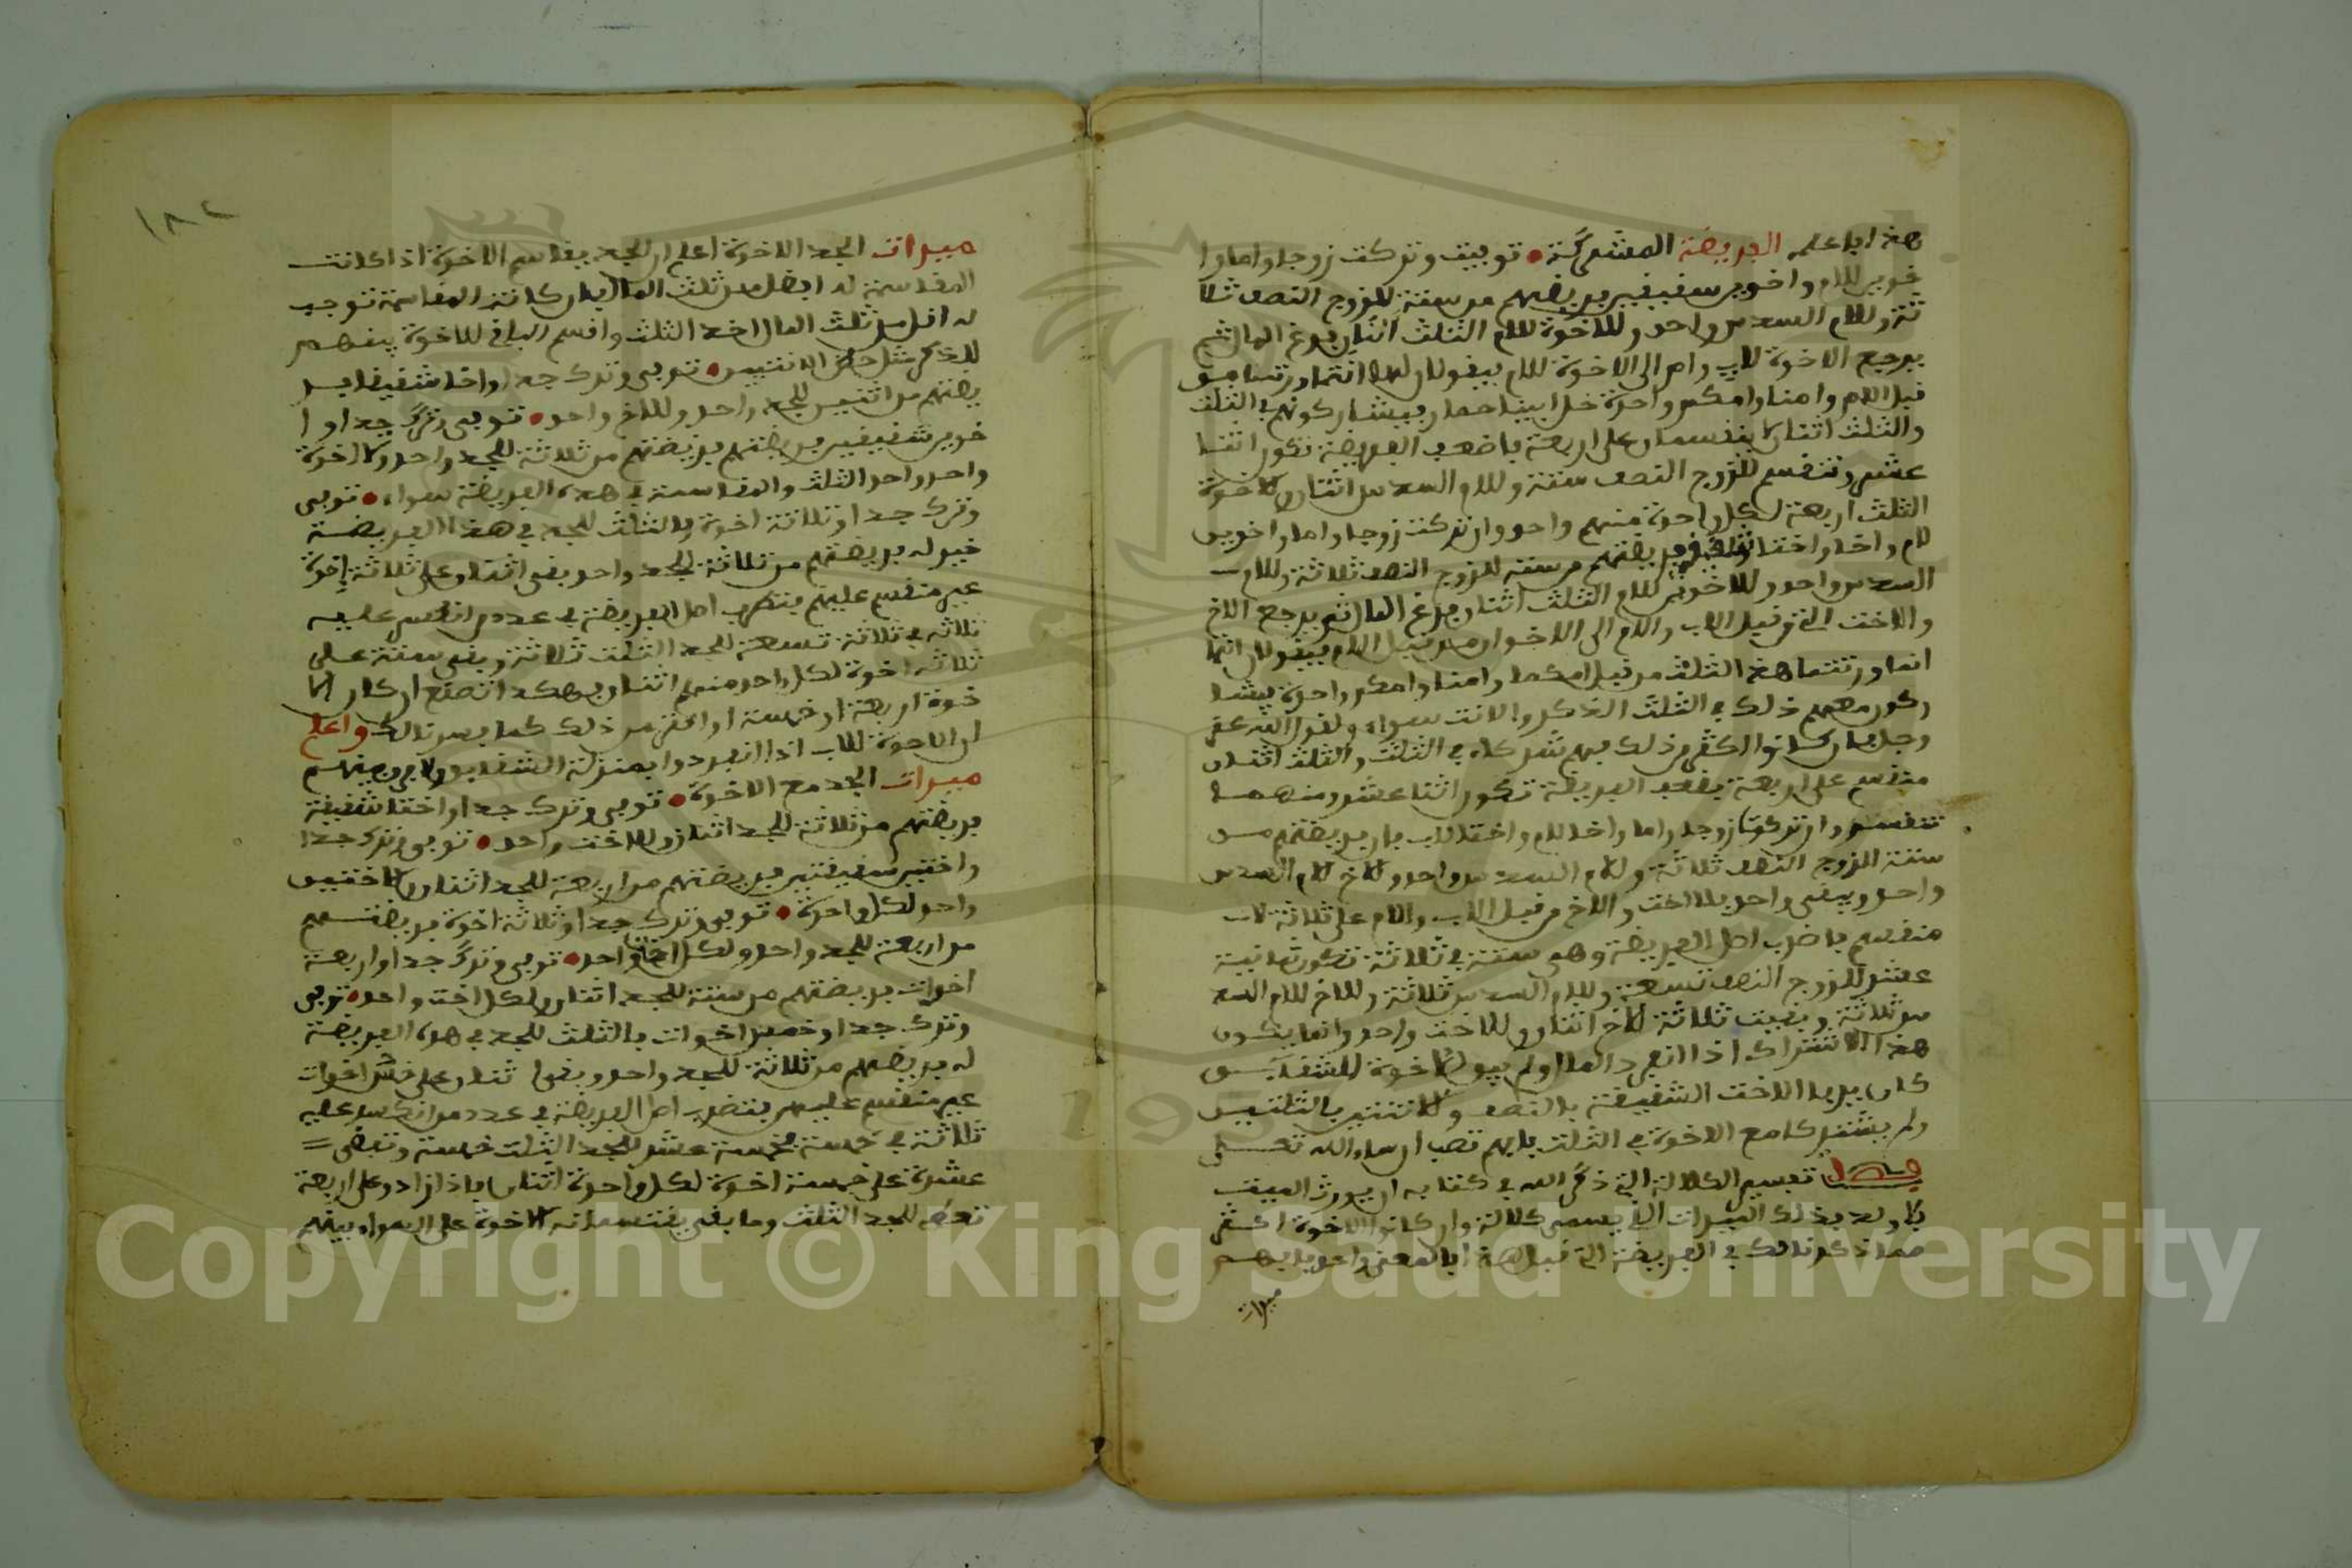 هذا باعلمه الفريضة المشتركة • توفيت وتركت زوجا واما وا
خوين للام واخوين شقيقين فريضتهم من ستة للزوج النصف ثلا
ثة وللام السدس واحد وللاخوة للام الثلث اثنان فرغ المال ثم
يرجع الاخوة للاب وام الى الاخوة للام فيقولان لهما انتما ورثتما من
قبل الام وامنا وامكم واحدة خل ابينا حمار فيشاركونهم في الثلث
والثلث اثنان لا ينقسمان على اربعة فاضعف الفريضة تكون اثنا
عشر وتنقسم للزوج النصف ستة وللام السدس اثنان وللاخوة
الثلث اربعة لكل واحدة منهم واحد وان تركت زوجا واما واخوين
للام واخا واختا فريضتهم من ستة للزوج النصف ثلاثة وللام
السدس واحد وللاخوين للام الثلث اثنان فرغ المال ثم يرجع الاخ
والاخت التي من قبل الاب والام الى الاخوان من قبل الام فيقولان انما
انما ورثتما هذا الثلث من قبل امكما وامنا وامكم واحدة فيشا
ركون معهم ذلك في الثلث الذكر والانثى سواء ولقول الله عز
وجل فان كانوا اكثر من ذلك فهم شركاء في الثلث والثلث اثنان
منقسم على اربعة فاضعف الفريضة تكون اثنا عشر ومنهما
تنقسم وان تركت زوجا واما واخا للام واختا للاب فان فريضتهم من
ستة للزوج النصف ثلاثة وللام السدس واحد وللاخ للام السدس
واحد ويبقى واحد للاخت والاخ من قبل الاب والام على ثلاثة لا
منقسم فاضرب اصل الفريضة وهي ستة في ثلاثة تكون ثمانية
عشر للزوج النصف تسعة وللام السدس ثلاثة وللاخ للام السد
س ثلاثة وبقيت ثلاثة للاخ اثنان وللاخت واحد وانما يكون
هذا الاشتراك اذا انفرد المال ولم يبق للاخوة الشقائق
كان بيد الاخت الشقيقة بالنصف وللاثنتين بالثلثين
ولم يشتركا مع الاخوة في الثلث فافهم تصب ان شاء الله تعالى
فصل تفسير الكلالة التي ذكر الله في كتابه ان يورث الميت
بلا ولد فذلك الميراث الذي يسمى كلالة وان كانوا الاخوة اكثر
مما ذكرنا لك في الفريضة التي قبل هذه فالمعنى واحد فافهم
ميراث
١٨٢
ميراث الجد الاخوة اعلم ان الجد يقاسم الاخوة اذا كانت
المقاسمة له افضل من ثلث المال فان كانت المقاسمة توجب
له اقل من ثلث المال اخذ الثلث واقسم الباقي للاخوة بينهم
للذكر مثل حظ الانثيين • توفى وترك جدا واخا شقيقا فر
يضتهم من اثنين للجد واحد وللاخ واحد • توفى وترك جدا وا
خوين شقيقين فريضتهم فريضتهم من ثلاثة للجد واحد ولكل اخوة
واحد واحد الثلث والمقاسمة في هذه الفريضة سواء • توفى
وترك جدا وثلاثة اخوة فالثلث للجد في هذا الفريضة
خير له فريضتهم من ثلاثة للجد واحد بقى اثنان على ثلاثة اخوة
غير منقسم عليهم فتضرب اصل الفريضة في عدد من انكسر عليه
ثلاثة في ثلاثة تسعة للجد الثلث ثلاثة وبقى ستة على
ثلاثة اخوة لكل واحد منهم اثنان فهكذا تصنع ان كان الا
خوة اربعة او خمسة او اكثر من ذلك كما فسرنا لك واعلم
ان الاخوة للاب اذا انفردوا بمنزلة الشقائق ولا فرق بينهم
ميراث الجد مع الاخوة • توفى وترك جدا واختا شقيقة
فريضتهم من ثلاثة للجد اثنان وللاخت واحد • توفى وترك جدا
واختين شقيقتين فريضتهم من اربعة للجد اثنان وللاختين
واحد لكل واحدة • توفى وترك جدا وثلاثة اخوة فريضتهم
من اربعة للجد واحد ولكل اخ واحد • توفى وترك جدا واربعة
اخوات فريضتهم من ستة للجد اثنان ولكل اخت واحد • توفى
وترك جدا وخمس اخوات فالثلث للجد في هذه الفريضة
له فريضتهم من ثلاثة للجد واحد وبقى اثنان على خمس اخوات
غير منقسم عليهم فتضرب اصل الفريضة في عدد من انكسر عليه
ثلاثة في خمسة بخمسة عشر للجد الثلث خمسة وتبقى =
عشرة على خمسة اخوة لكل واحدة اثنان فاذا زاد وعلى اربعة
تعطى للجد الثلث وما بقى يقتسمانه الاخوة على السواء بينهم
Copyright © King Saud University
1957